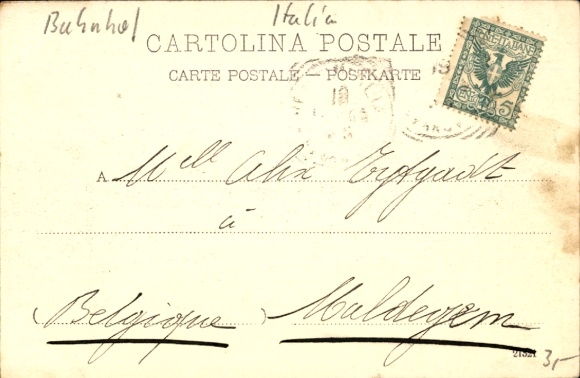 Bahnhof Italia
CARTOLINA POSTALE
CARTE POSTALE — POSTKARTE
POSTE ITALIANE
5
18
A Mlle Alix
à
(Belgique) Maldegem
21321 3,-